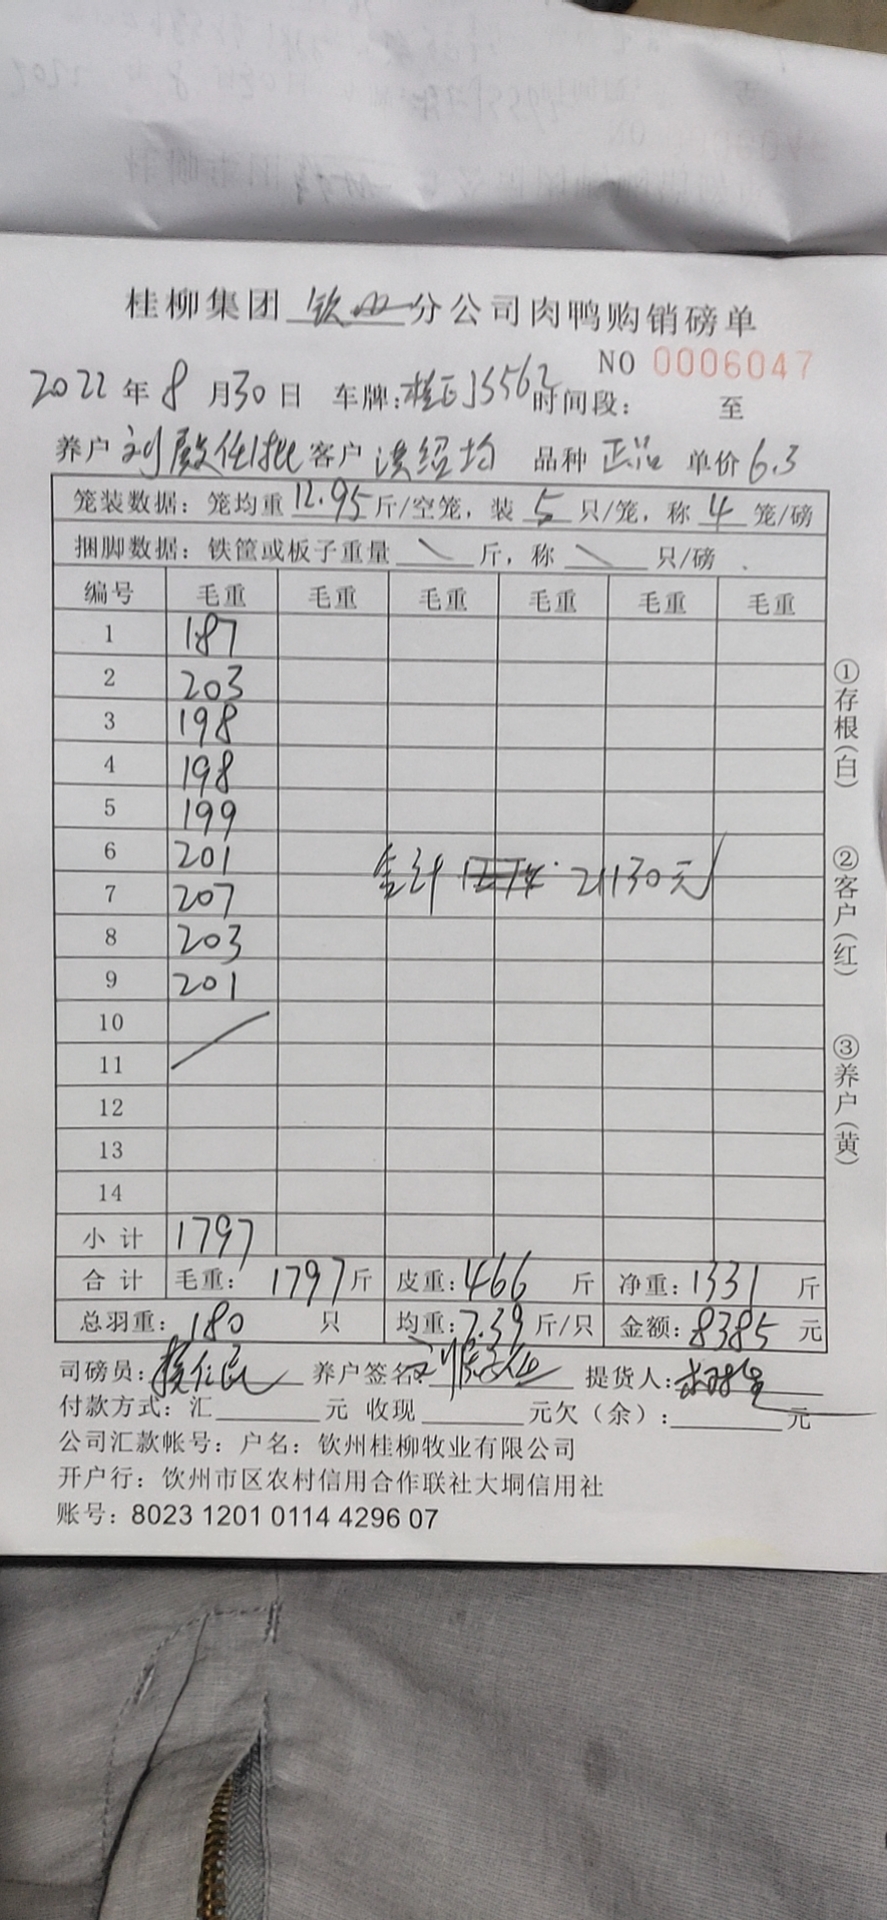 桂柳集团 钦州 分公司肉鸭购销磅单
NO 0006047
2022 年 8 月 30 日 车牌: 桂 J5562 时间段: 至
养户 刘 客户 洪绍均 品种 正品 单价 6.3
笼装数据: 笼均重 12.95 斤/空笼, 装 5 只/笼, 称 4 笼/磅
捆脚数据: 铁筐或板子重量 \ 斤, 称 \ 只/磅
编号 毛重 毛重 毛重 毛重 毛重 毛重
1 187
2 203
3 198
4 198
5 199
6 201
合计 21130元
7 207
8 203
9 201
10
11
12
13
14
小计 1797
合计 毛重: 1797 斤 皮重: 466 斤 净重: 1331 斤
总羽重: 180 只 均重: 7.39 斤/只 金额: 8385 元
司磅员: 养户签名: 提货人:
付款方式: 汇 元 收现 元欠(余): 元
公司汇款帐号: 户名: 钦州桂柳牧业有限公司
开户行: 钦州市区农村信用合作联社大垌信用社
账号: 8023 1201 0114 4296 07
①存根(白)
②客户(红)
③养户(黄)